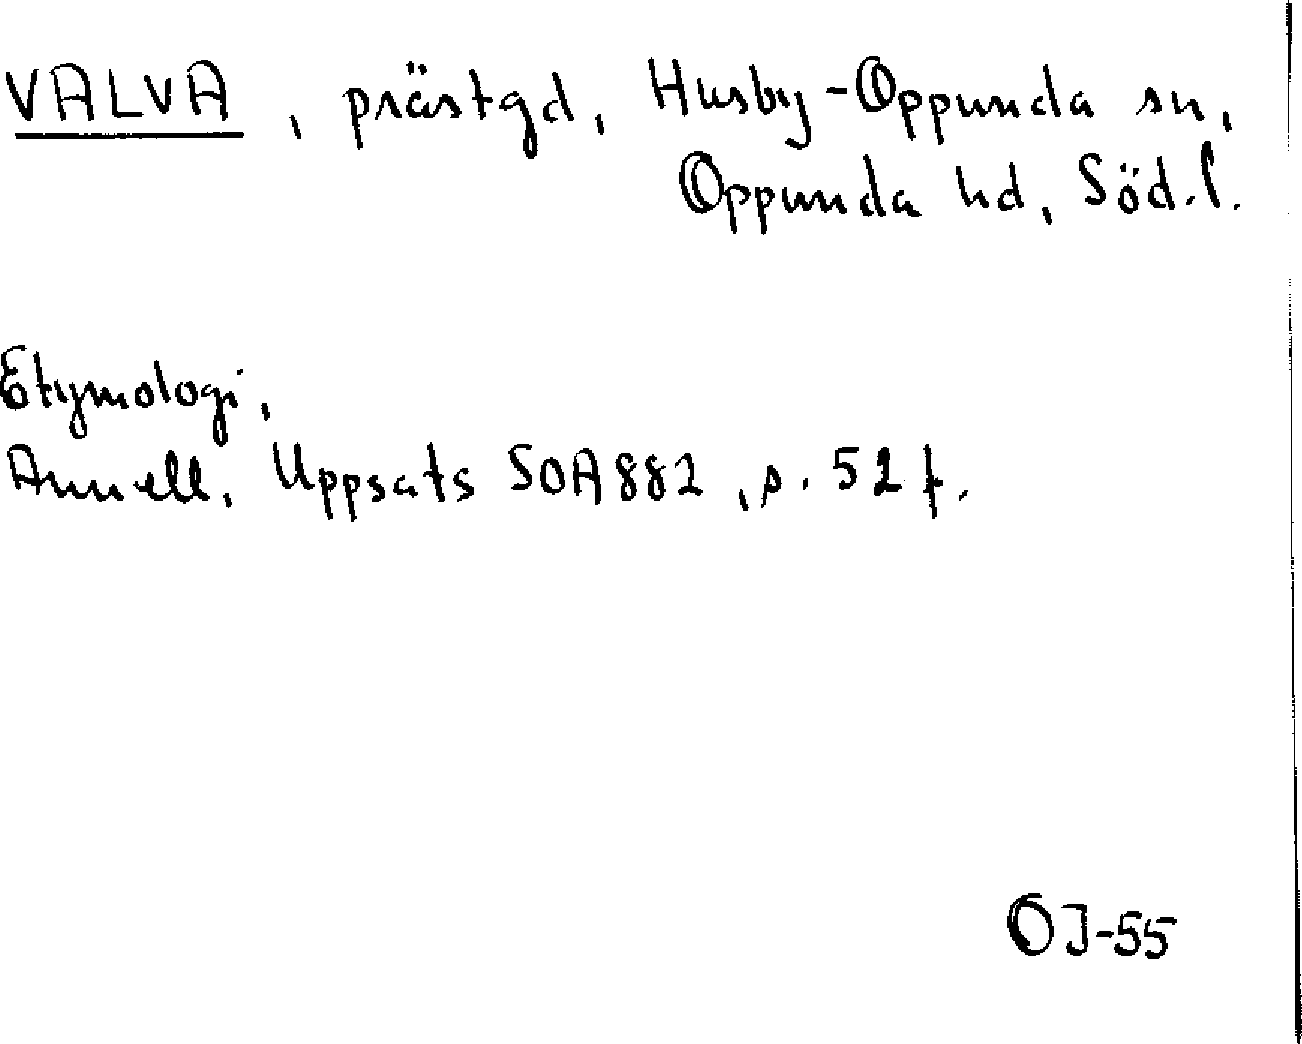 VALVA, prästgd, Husby-Oppunda sn,
Oppunda hd, Söd.l.
Etymologi,
Annell, Uppsats SOA882, s. 52 f.
OJ-55